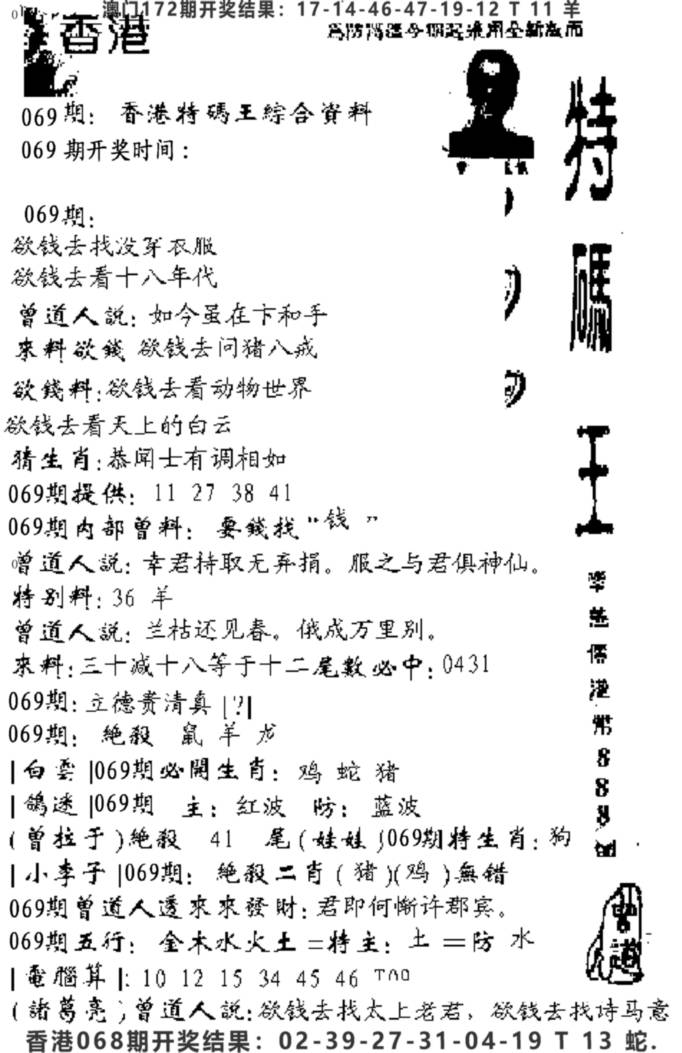 澳门172期开奖结果：17-14-46-47-19-12 T 11 羊
香港
069期：香港特碼王綜合資料
069期开奖时间：
069期：
欲钱去找没穿衣服
欲钱去看十八年代
曾道人説：如今虽在卞和手
來料欲錢 欲钱去问猪八戒
欲錢料：欲钱去看动物世界
欲钱去看天上的白云
猜生肖：恭闻士有调相如
069期提供：11 27 38 41
069期内部曾料：要錢找“钱”
曾道人説：幸君持取无弃捐。服之与君俱神仙。
特别料：36 羊
曾道人説：兰枯还见春。俄成万里别。
來料：三十减十八等于十二尾數必中：0431
069期：立德贵清真 |?|
069期：絶殺 鼠 羊 龙
|白雲|069期必開生肖：鸡 蛇 猪
|鴿迷|069期 主：红波 防：蓝波
(曾拉于)絶殺 41 尾(娃娃)069期特生肖：狗
|小李子|069期：絶殺二肖(猪)(鸡)無错
069期曾道人透來來發財：君即何惭许郡宾。
069期五行：金木水火土=特主：土=防 水
|電腦算|：10 12 15 34 45 46
(諸葛亮)曾道人説：欲钱去找太上老君，欲钱去找诗马意
香港068期开奖结果：02-39-27-31-04-19 T 13 蛇.
特
碼
王
港
幣
8
8
8